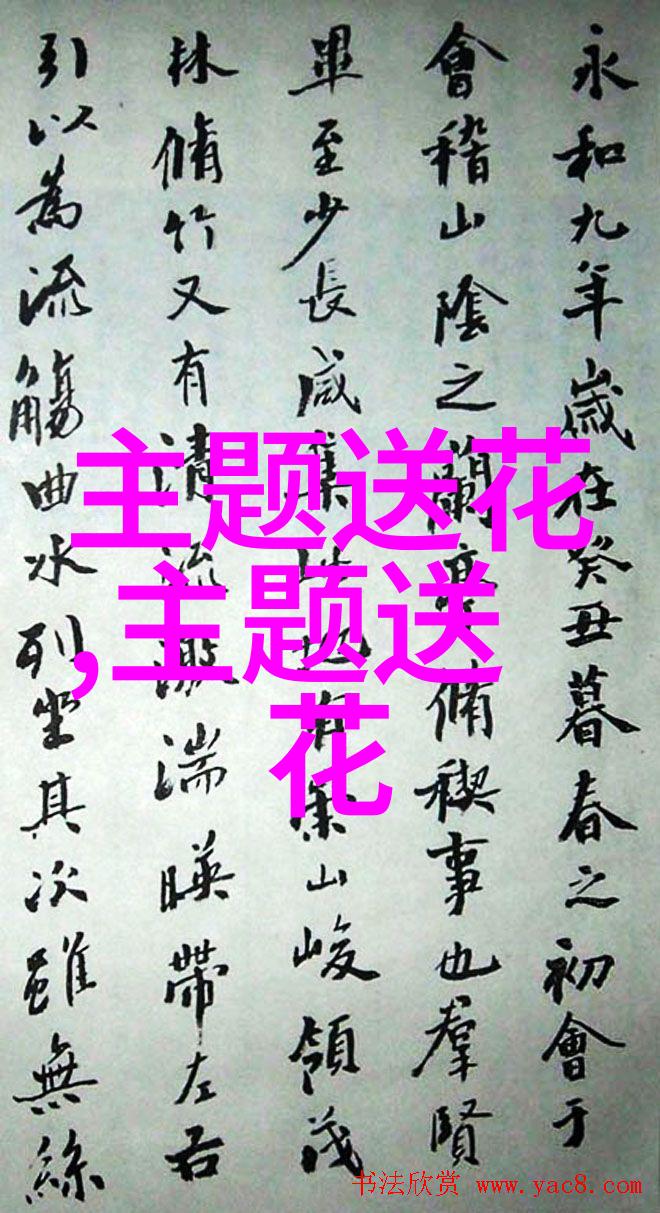 永和九年歲在癸丑暮春之初會于
會稽山陰之蘭亭脩稧事也羣賢
畢至少長咸集此地有崇山峻領茂
林脩竹又有清流激湍暎帶左右
引以為流觴曲水列坐其次雖無絲
主题送花
,主题送
花
书法欣赏 www.yac8.com